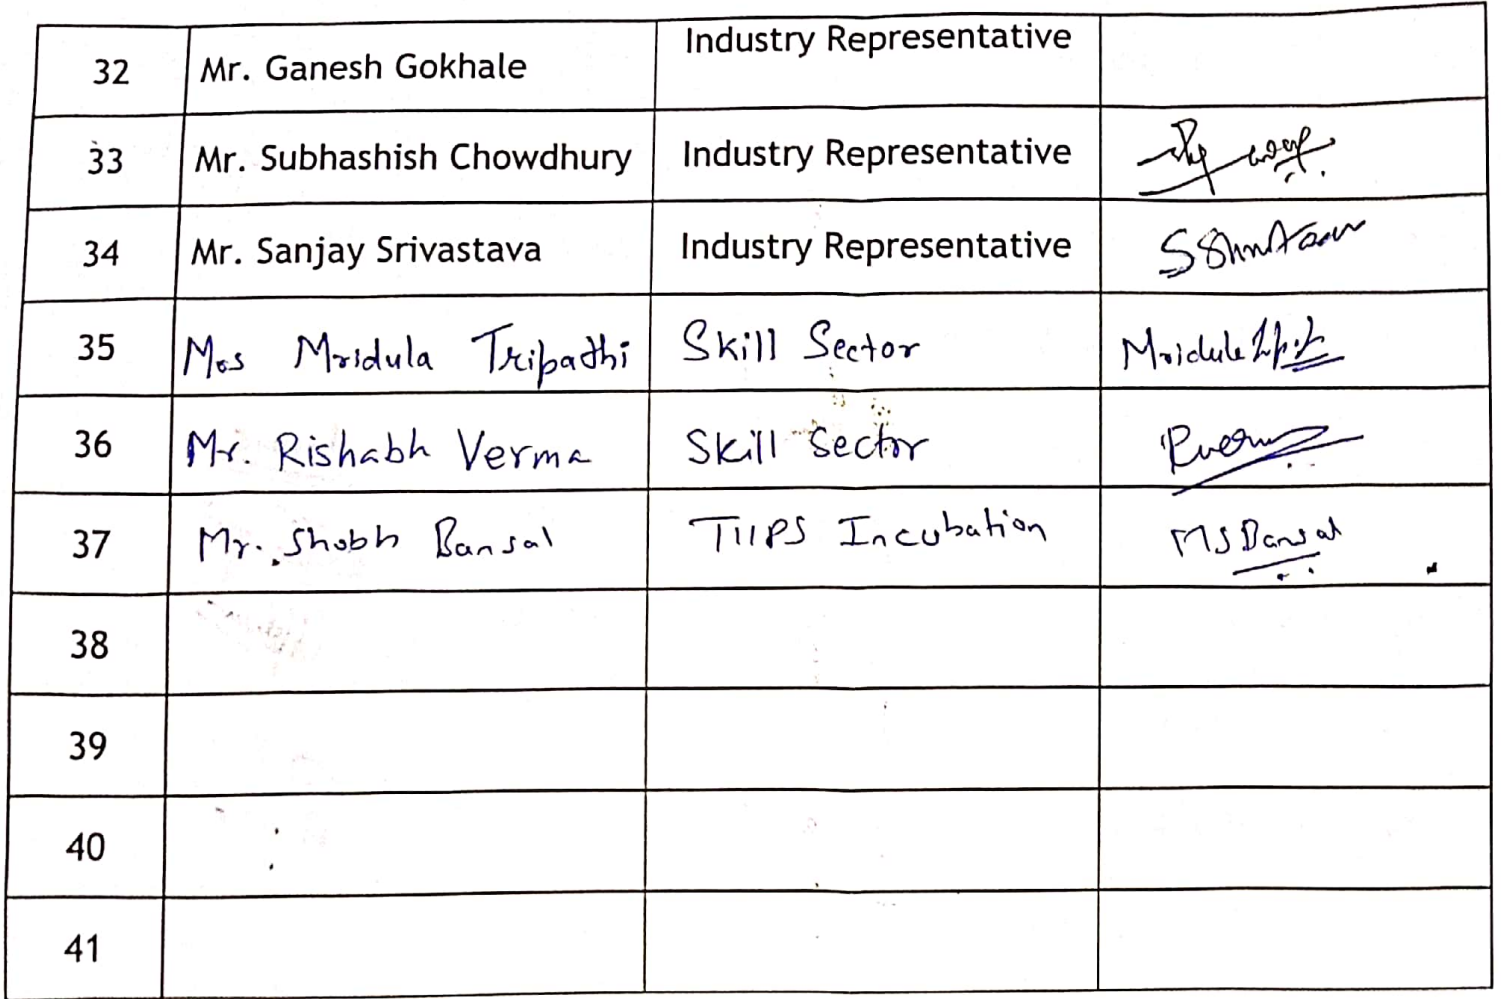 32 Mr. Ganesh Gokhale Industry Representative
33 Mr. Subhashish Chowdhury Industry Representative
34 Mr. Sanjay Srivastava Industry Representative
35 Mrs Mridula Tripathi Skill Sector Mridula
36 Mr. Rishabh Verma Skill Sector RVerma
37 Mr. Shobh Bansal TIIPS Incubation MSBansal
38
39
40
41